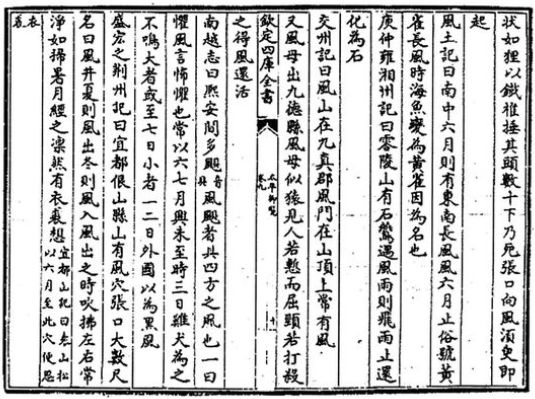 状如狸以鐵椎捶其頭數十下乃死張口向風須臾即
起
風土記曰南中六月則有東南長風風六月止俗號黃
雀長風時海魚變為黃雀因為名也
庾仲雍湘州記曰零陵山有石鷰遇風雨則飛雨止還
化為石
交州記曰風山在九真郡風門在山頂上常有風
又風母出九德縣風母似猿見人若慙而屈頸若打殺
欽定四庫全書
太平御覽
卷九
十
之得風還活
南越志曰熙安間多颶音具風颶者具四方之風也一曰
懼風言怖懼也常以六七月興未至時三日雞犬為之
不鳴大者或至七日小者一二日外國以為黑風
盛宏之荆州記曰宜都佷山縣山有風穴張口大數尺
名曰風井夏則風出冬則風入風出之時吹拂左右常
淨如掃暑月經之凛然有衣裘想宜都山記曰袁山松以六月至此穴便思
衣裘